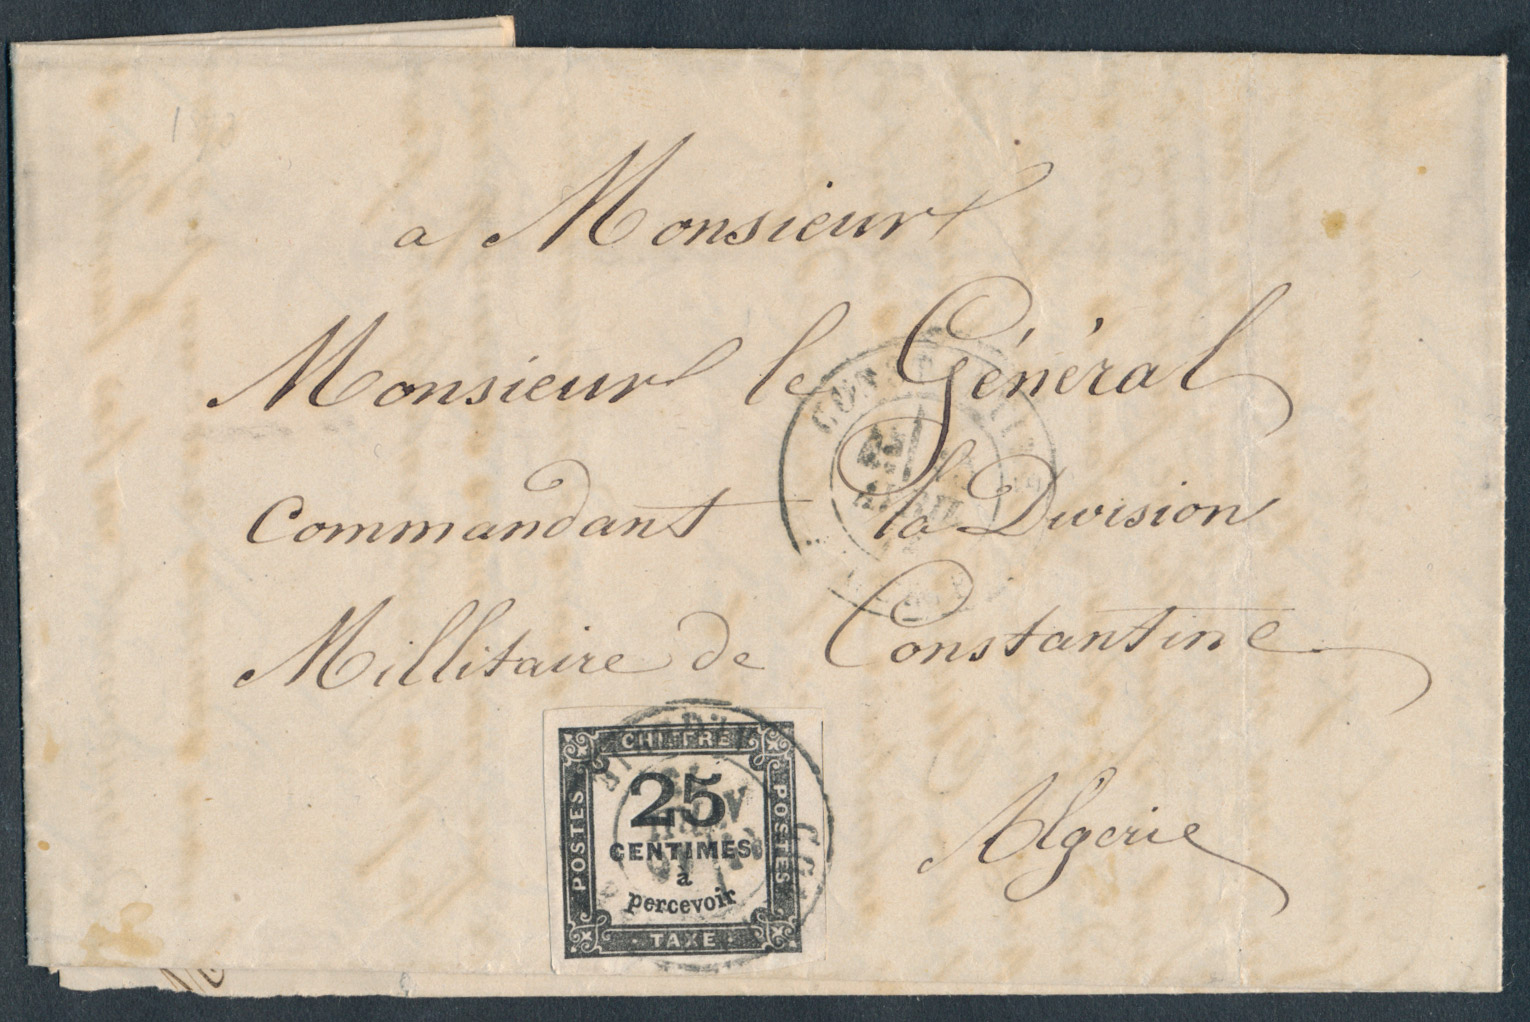 a Monsieur
Monsieur le Général
Commandant la Division
Millitaire de Constantine
Algérie
CHIFFRE
POSTES
25
CENTIMES
à
percevoir
POSTES
TAXE